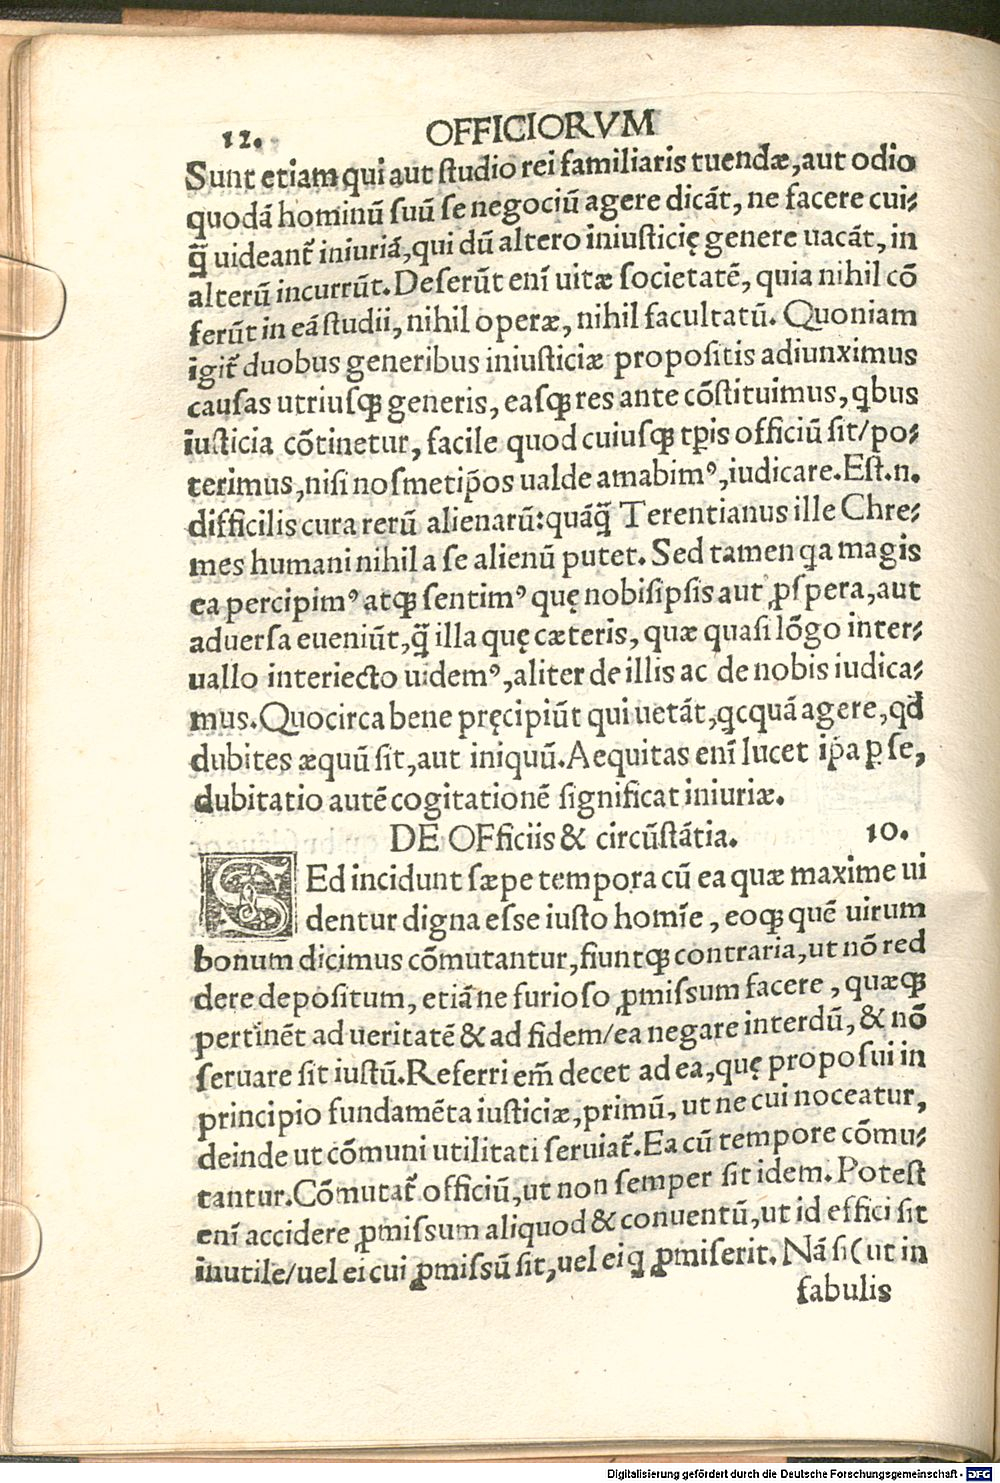 12.
OFFICIORVM
Sunt etiam qui aut studio rei familiaris tuendæ, aut odio
quodā hominū suū se negociū agere dicāt, ne facere cui⸗
q̃ uideant᷑ iniuriā, qui dū altero iniusticię genere uacāt, in
alterū incurrūt. Deserūt enī uitæ societatē, quia nihil cō
ferūt in eā studii, nihil operæ, nihil facultatū. Quoniam
igit᷑ duobus generibus iniusticiæ propositis adiunximus
causas utriusqꝫ generis, easqꝫ res ante cōstituimus, qbus
iusticia cōtinetur, facile quod cuiusqꝫ tp̄is officiū sit/po⸗
terimus, nisi nosmetip̄os ualde amabimꝰ, iudicare. Est.n.
difficilis cura rerū alienarū: quāq̃ Terentianus ille Chre⸗
mes humani nihil a se alienū putet. Sed tamen qa magis
ea percipimꝰ atqꝫ sentimꝰ quę nobisipsis aut ꝓspera, aut
aduersa eueniūt, q̃ illa quę cæteris, quæ quasi lōgo inter⸗
uallo interiecto uidemꝰ, aliter de illis ac de nobis iudica⸗
mus. Quocirca bene pręcipiūt qui uetāt, qcquā agere, qd
dubites æquū sit, aut iniquū. Aequitas enī lucet ip̄a ꝑ se,
dubitatio autē cogitationē significat iniuriæ.
DE OFficiis & circūstātia. 10.
SEd incidunt sæpe tempora cū ea quæ maxime ui
dentur digna esse iusto homīe, eoqꝫ quē uirum
bonum dicimus cōmutantur, fiuntqꝫ contraria, ut nō red
dere depositum, etiā ne furioso ꝓmissum facere, quæqꝫ
pertinēt ad ueritatē & ad fidem/ea negare interdū, & nō
seruare sit iustū. Referri em̄ decet ad ea, quę proposui in
principio fundamēta iusticiæ, primū, ut ne cui noceatur,
deinde ut cōmuni utilitati seruiat᷑. Ea cū tempore cōmu⸗
tantur. Cōmutat᷑ officiū, ut non semper sit idem. Potest
enī accidere ꝓmissum aliquod & conuentū, ut id effici sit
inutile/uel ei cui ꝓmissū sit, uel ei q ꝓmiserit. Nā si (ut in
fabulis
Digitalisierung gefördert durch die Deutsche Forschungsgemeinschaft - DFG